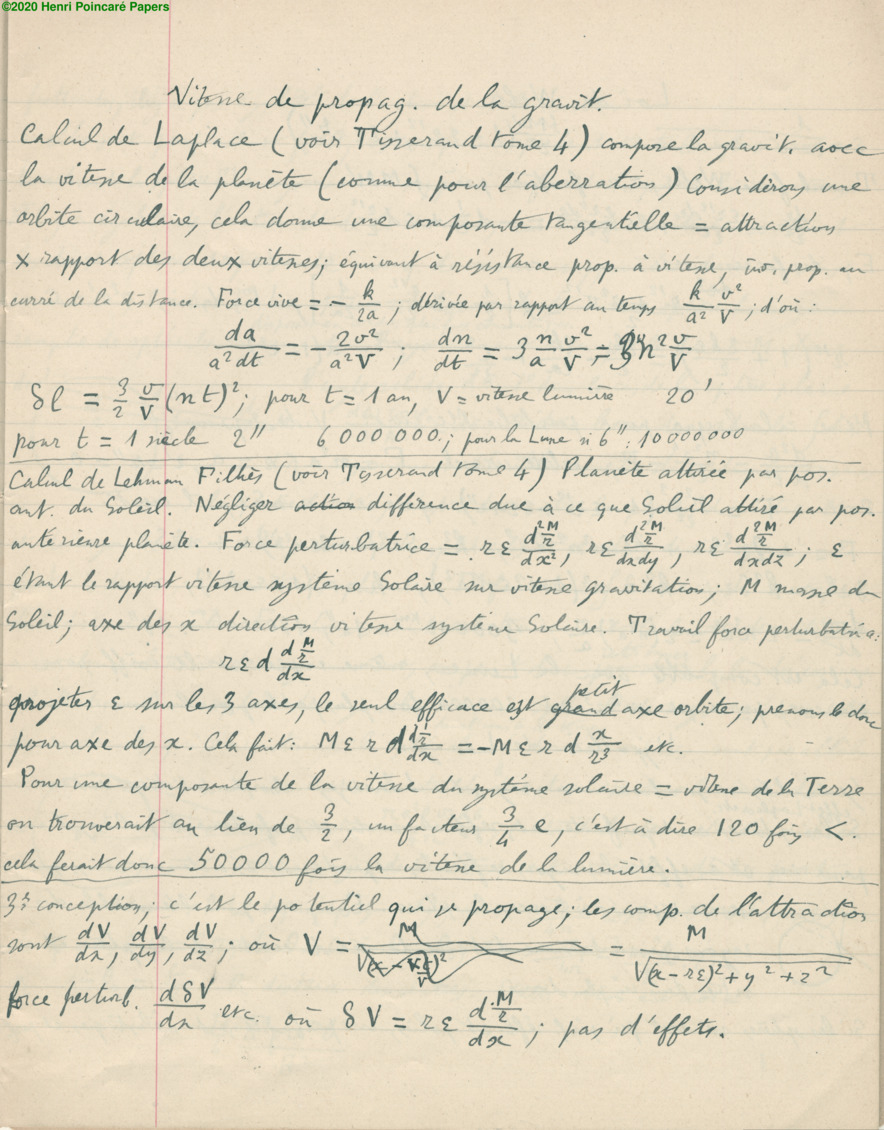 ©2020 Henri Poincaré Papers
Vitesse de propag. de la gravit.
Calcul de Laplace (voir Tisserand tome 4) compose la gravit. avec
la vitesse de la planète (comme pour l'aberration) Considérons une
orbite circulaire, cela donne une composante tangentielle = attraction
× rapport des deux vitesses; équivaut à résistance prop. à vitesse, inv. prop. au
carré de la distance. Force vive = - k/2a ; dérivée par rapport au temps k/a² v²/V ; d'où :
da/a²dt = - 2v²/a²V ; dn/dt = 3 n/a v²/V = 3 n² v/V
δl = 3/2 v/V (nt)²; pour t = 1 an, V = vitesse lumière 20'
pour t = 1 siècle 2" 6 000 000.; pour la Lune si 6": 10000000
Calcul de Lehman Filhès (voir Tisserand tome 4) Planète attirée par pos.
ant. du Soleil. Négliger action différence due à ce que Soleil attiré par pos.
antérieure planète. Force perturbatrice = rε d² M/r / dx², rε d² M/r / dxdy, rε d² M/r / dxdz ; ε
étant le rapport vitesse système Solaire sur vitesse gravitation; M masse du
Soleil; axe des x direction vitesse système Solaire. Travail force perturbatrice:
rε d d M/r / dx
projeter ε sur les 3 axes, le seul efficace est grand petit axe orbite; prenons le donc
pour axe des x. Cela fait: Mε r d d 1/r / dx = -Mε r d x/r³ etc.
Pour une composante de la vitesse du système solaire = vitesse de la Terre
on trouverait au lieu de 3/2, un facteur 3/4 e, c'est à dire 120 fois <.
cela ferait donc 50000 fois la vitesse de la lumière.
3e conception; c'est le potentiel qui se propage; les comp. de l'attraction
sont dV/dx, dV/dy, dV/dz ; où V = M/√(x - )² = M/√(x-rε)²+y²+z²
force perturb. dδV/dx etc. où δV = rε d M/r / dx ; pas d'effets.